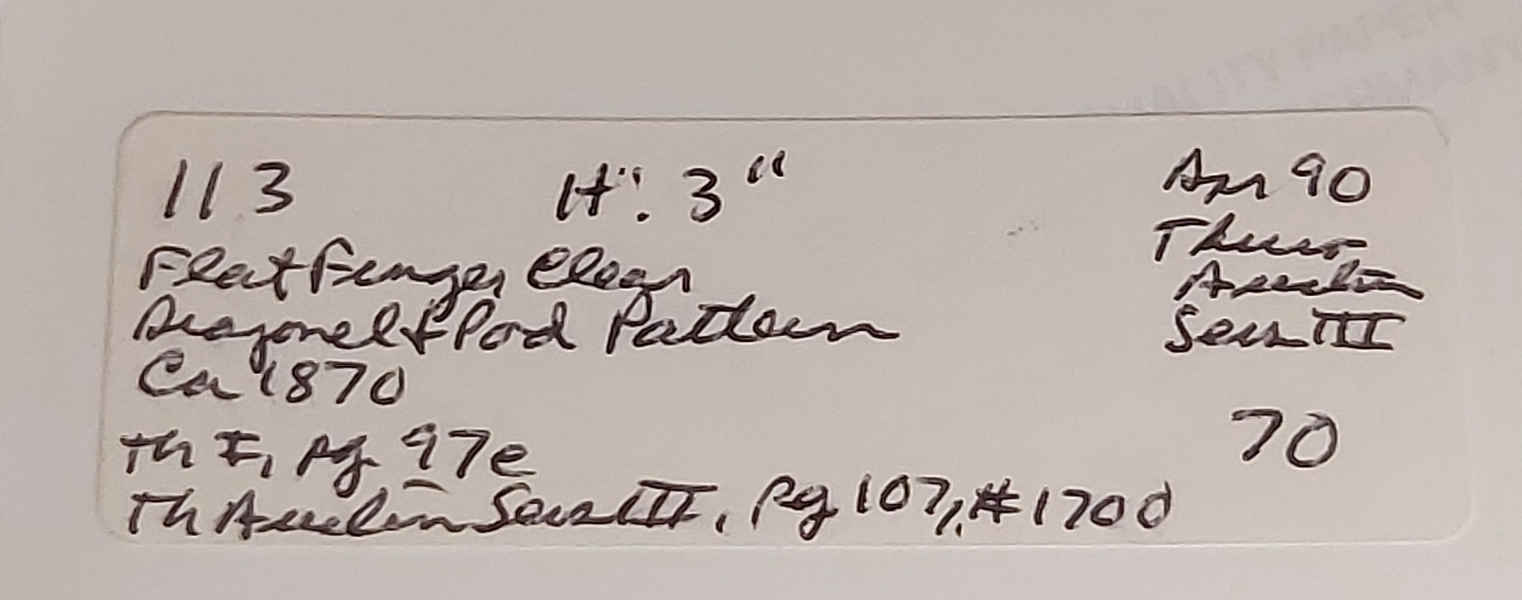 113 H". 3"
Apr 90
Thuro
Auction
Series III
Flat Finger, Clear
Diagonal & Pod Pattern
Ca 1870
70
Th I, pg. 97e
Th Auction Series III, pg 107, #1700